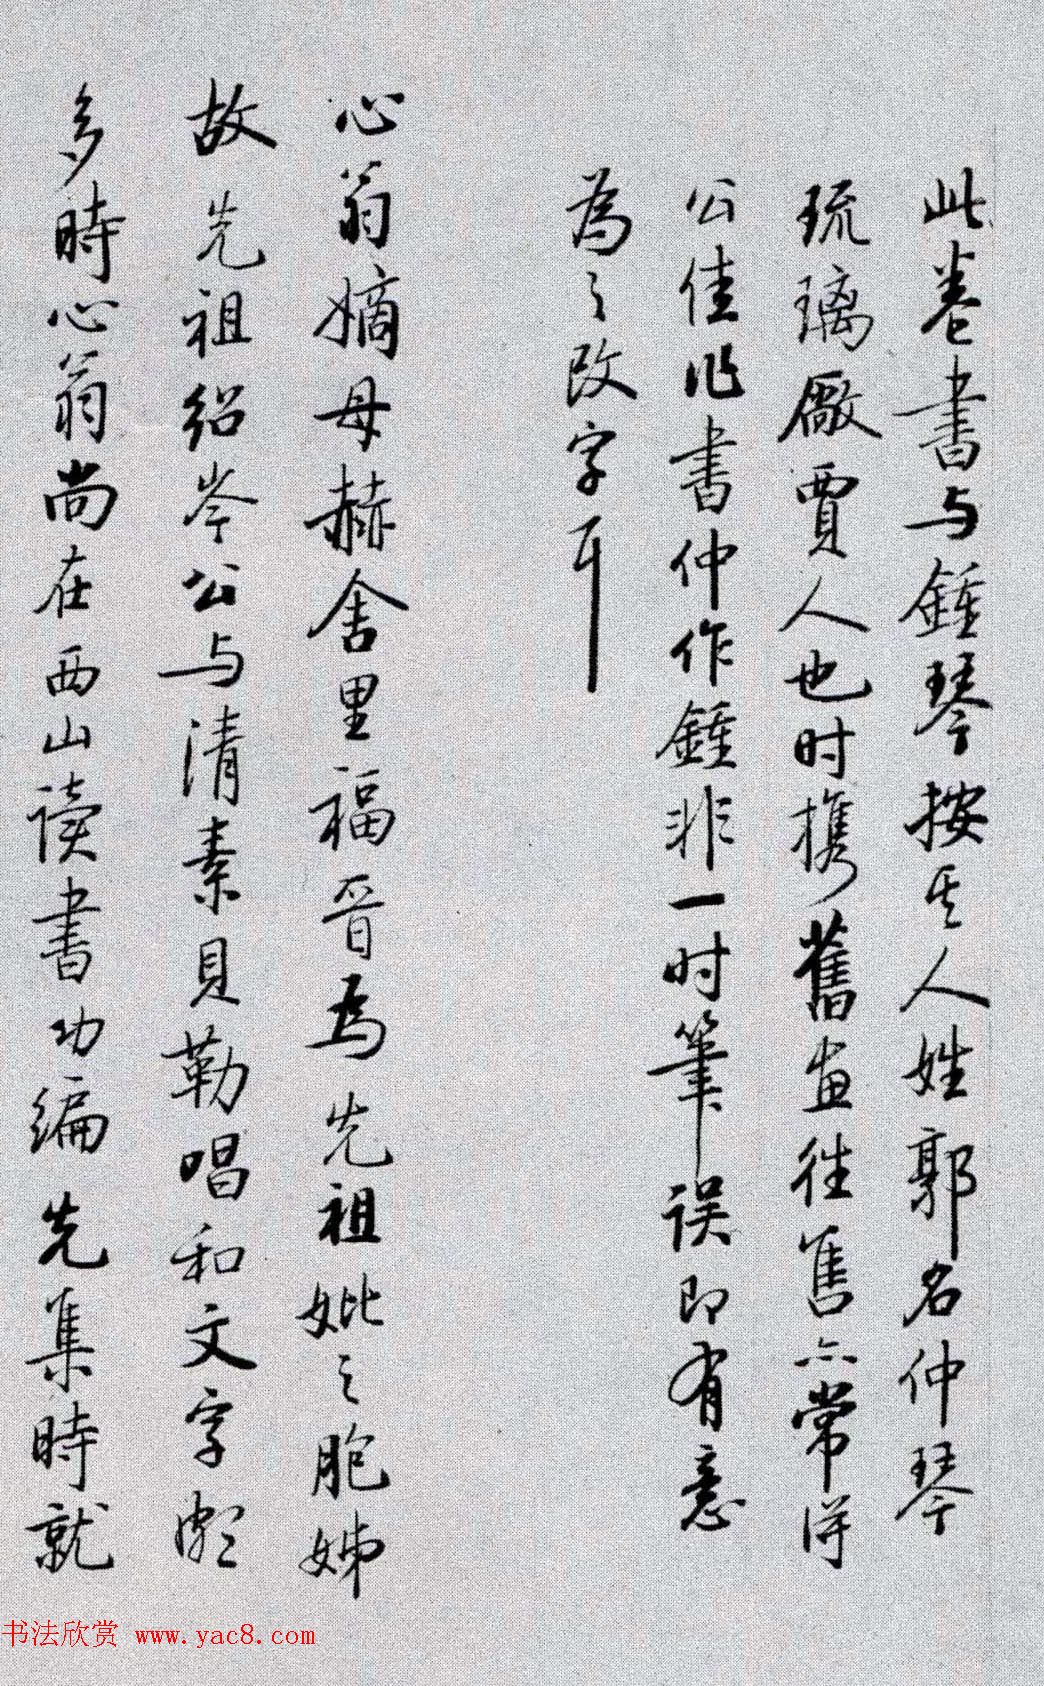 此卷書与鍾琴按其人姓郭名仲琴
琉璃厰賈人也时携舊畫往售亦常得
公佳作書仲作鍾非一时筆误即有意
為之改字耳
心翁嫡母赫舍里福晉为先祖妣之胞姊
故先祖绍岑公与清素貝勒唱和文字頗
多時心翁尚在西山读書功编先集時就
书法欣赏 www.yac8.com